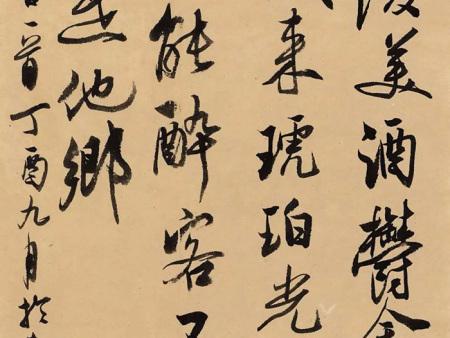 陵美酒鬱金
來琥珀光
能醉客不
是他鄉
一首丁酉九月於